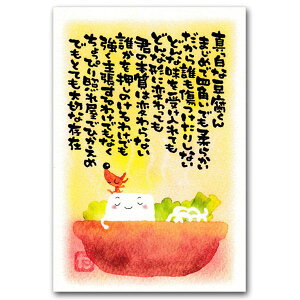 真白な豆腐くん
まじめで四角いでも柔らかい
だから誰も傷つけたりしない
どんな味を受け入れても
どんな形に変わっても
君の本質は変わらない
誰かを押しのけるわけでも
強く主張するわけでもなく
ちょっぴり照れ屋でひかえめ
でもとても大切な存在